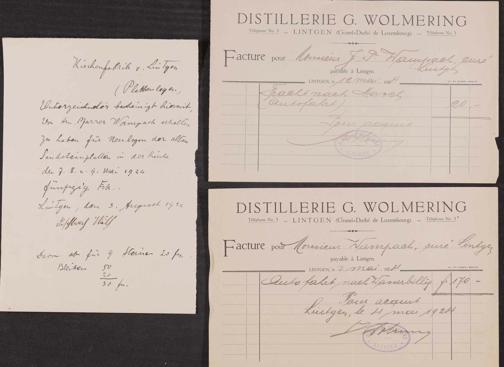 Kirchenfabrik v. Lintgen
(Plattenlegen)
Unterzeichneter bescheinigt hiermit,
von Hr. Pfarrer Wampach erhalten
zu haben für Neulegen der alten
Sandsteinplatten in der Kirche
den 7. 8. u. 9. Mai 1924
fünfzig Frk.
Lintgen, den 3. August 1924
ab für 9 Steine 20 fr.
Bleiben 50
20
30 fr.
DISTILLERIE G. WOLMERING
Téléphone No. 3 — LINTGEN (Grand-Duché de Luxembourg). — Téléphone No. 3
Facture pour Monsieur J. P. Wampach, curé
Lintgen
payable à Lintgen.
LINTGEN, le 12 mai
nach
(Autofahrt) 20,-
Pour acquit
DISTILLERIE G. WOLMERING
Téléphone No. 3 — LINTGEN (Grand-Duché de Luxembourg). — Téléphone No. 3
Facture pour Monsieur Wampach, curé Lintgen
payable à Lintgen.
LINTGEN, le 2 mai
Autofahrt nach Wasserbillig fr 170 -
Pour acquit
Lintgen, le 4 mai 1924